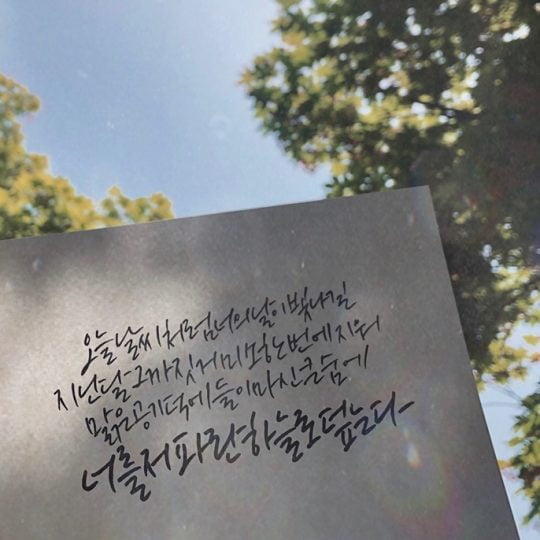 오늘 날씨처럼 너의 날이 빛나길
지난달 그까짓 거 미소 한 번에 지워
맑은 공기 덕에 들이마신 큰 숨에
너를 저 파란 하늘로 덮는다